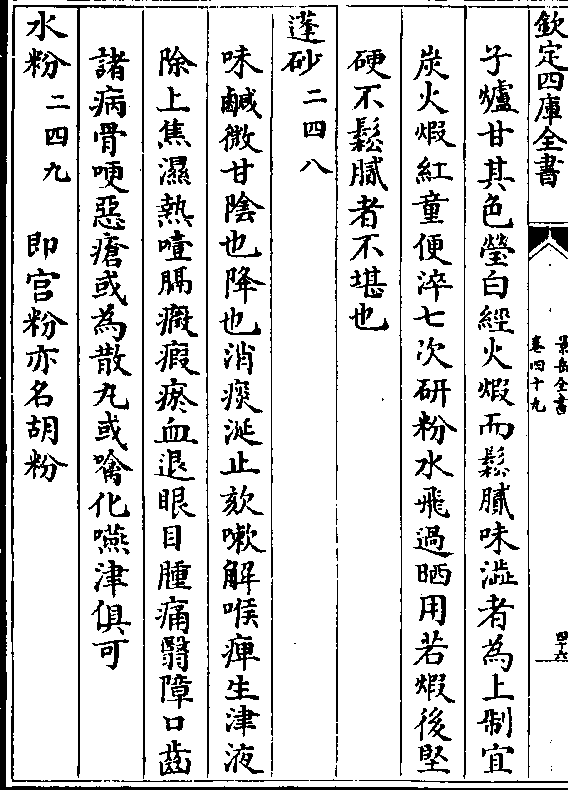 欽定四庫全書
景岳全書
卷四十九
四十六
子爐甘其色瑩白經火煅而鬆膩味澁者為上制宜
炭火煅紅童便淬七次研粉水飛過晒用若煅後堅
硬不鬆膩者不堪也
蓬砂二四八
味鹹微甘陰也降也消痰涎止欬嗽解喉痺生津液
除上焦濕熱噎膈癥瘕瘀血退眼目腫痛翳障口齒
諸病骨哽惡瘡或為散丸或噙化嚥津俱可
水粉二四九 即宫粉亦名胡粉